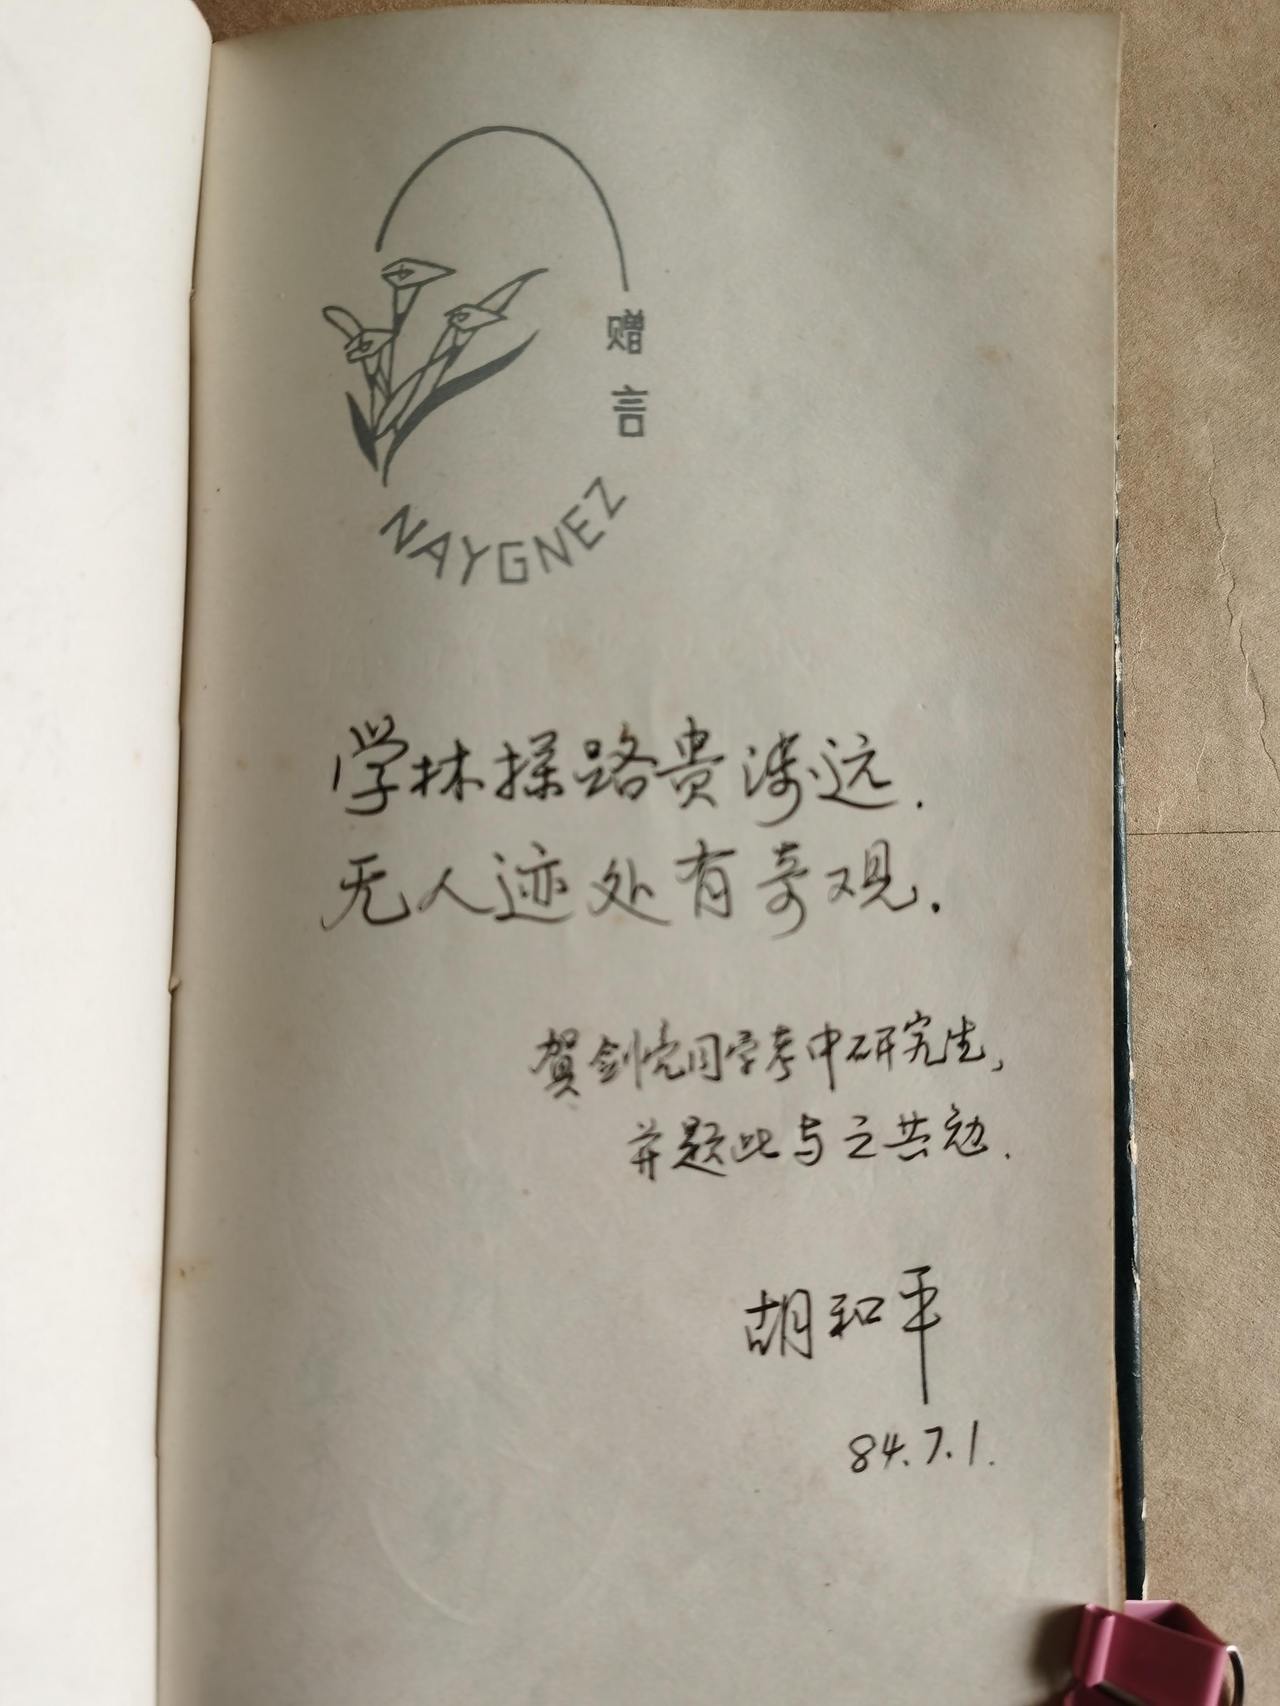 赠言
NAYGNEZ
学林探路贵涉远.
无人迹处有奇观.
贺剑亮同学考中研究生,
并题此与之共勉.
胡和平
84.7.1.